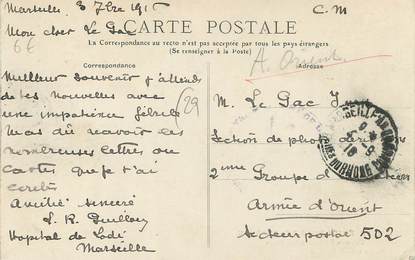 Marseille 3 7bre 1915
C. M
Mon cher Le Gac
66
CARTE POSTALE
La Correspondance au recto n'est pas acceptée par tous les pays étrangers
(Se renseigner à la Poste)
A. Orient
Correspondance
Adresse
Meilleur souvenir j'attends
de tes nouvelles avec
une impatience fébrile
29
du recevoir des
nombreuses lettres ou
cartes que je t'ai
Amitié sincère
L. R.
Hopital de Lodi
Marseille
M. Le Gac
Section de photo
2ème Groupe
Armée d'Orient
Secteur postal 502